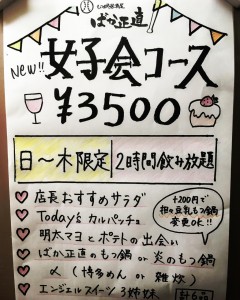 もつ鍋居酒屋
ばか正直
New!! 女子会コース
¥3500
日〜木限定 2時間飲み放題
店長おすすめサラダ
Today's カルパッチョ
明太マヨとポテトの出会い
ばか正直のもつ鍋 or 炎のもつ鍋
〆(博多めん or 雑炊)
エンジェルスイーツ3姉妹
+200円で
担々豆乳もつ鍋
変更OK!!
計6品